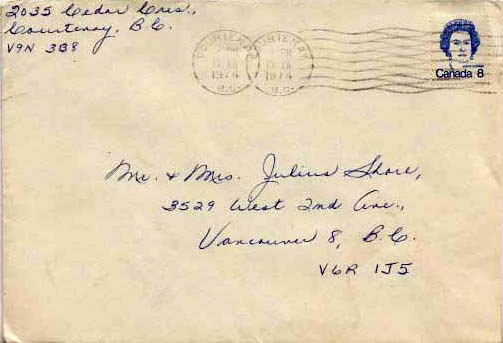 2035 Cedar Cres.,
Courtenay, B.C.
V9N 3B8
COURTENAY
PM
13 XII
1974
B.C.
COURTENAY
PM
13 XII
1974
B.C.
Canada 8
Mr. & Mrs. Julius Shore,
3529 West 2nd Ave.,
Vancouver 8, B.C.
V6R 1J5